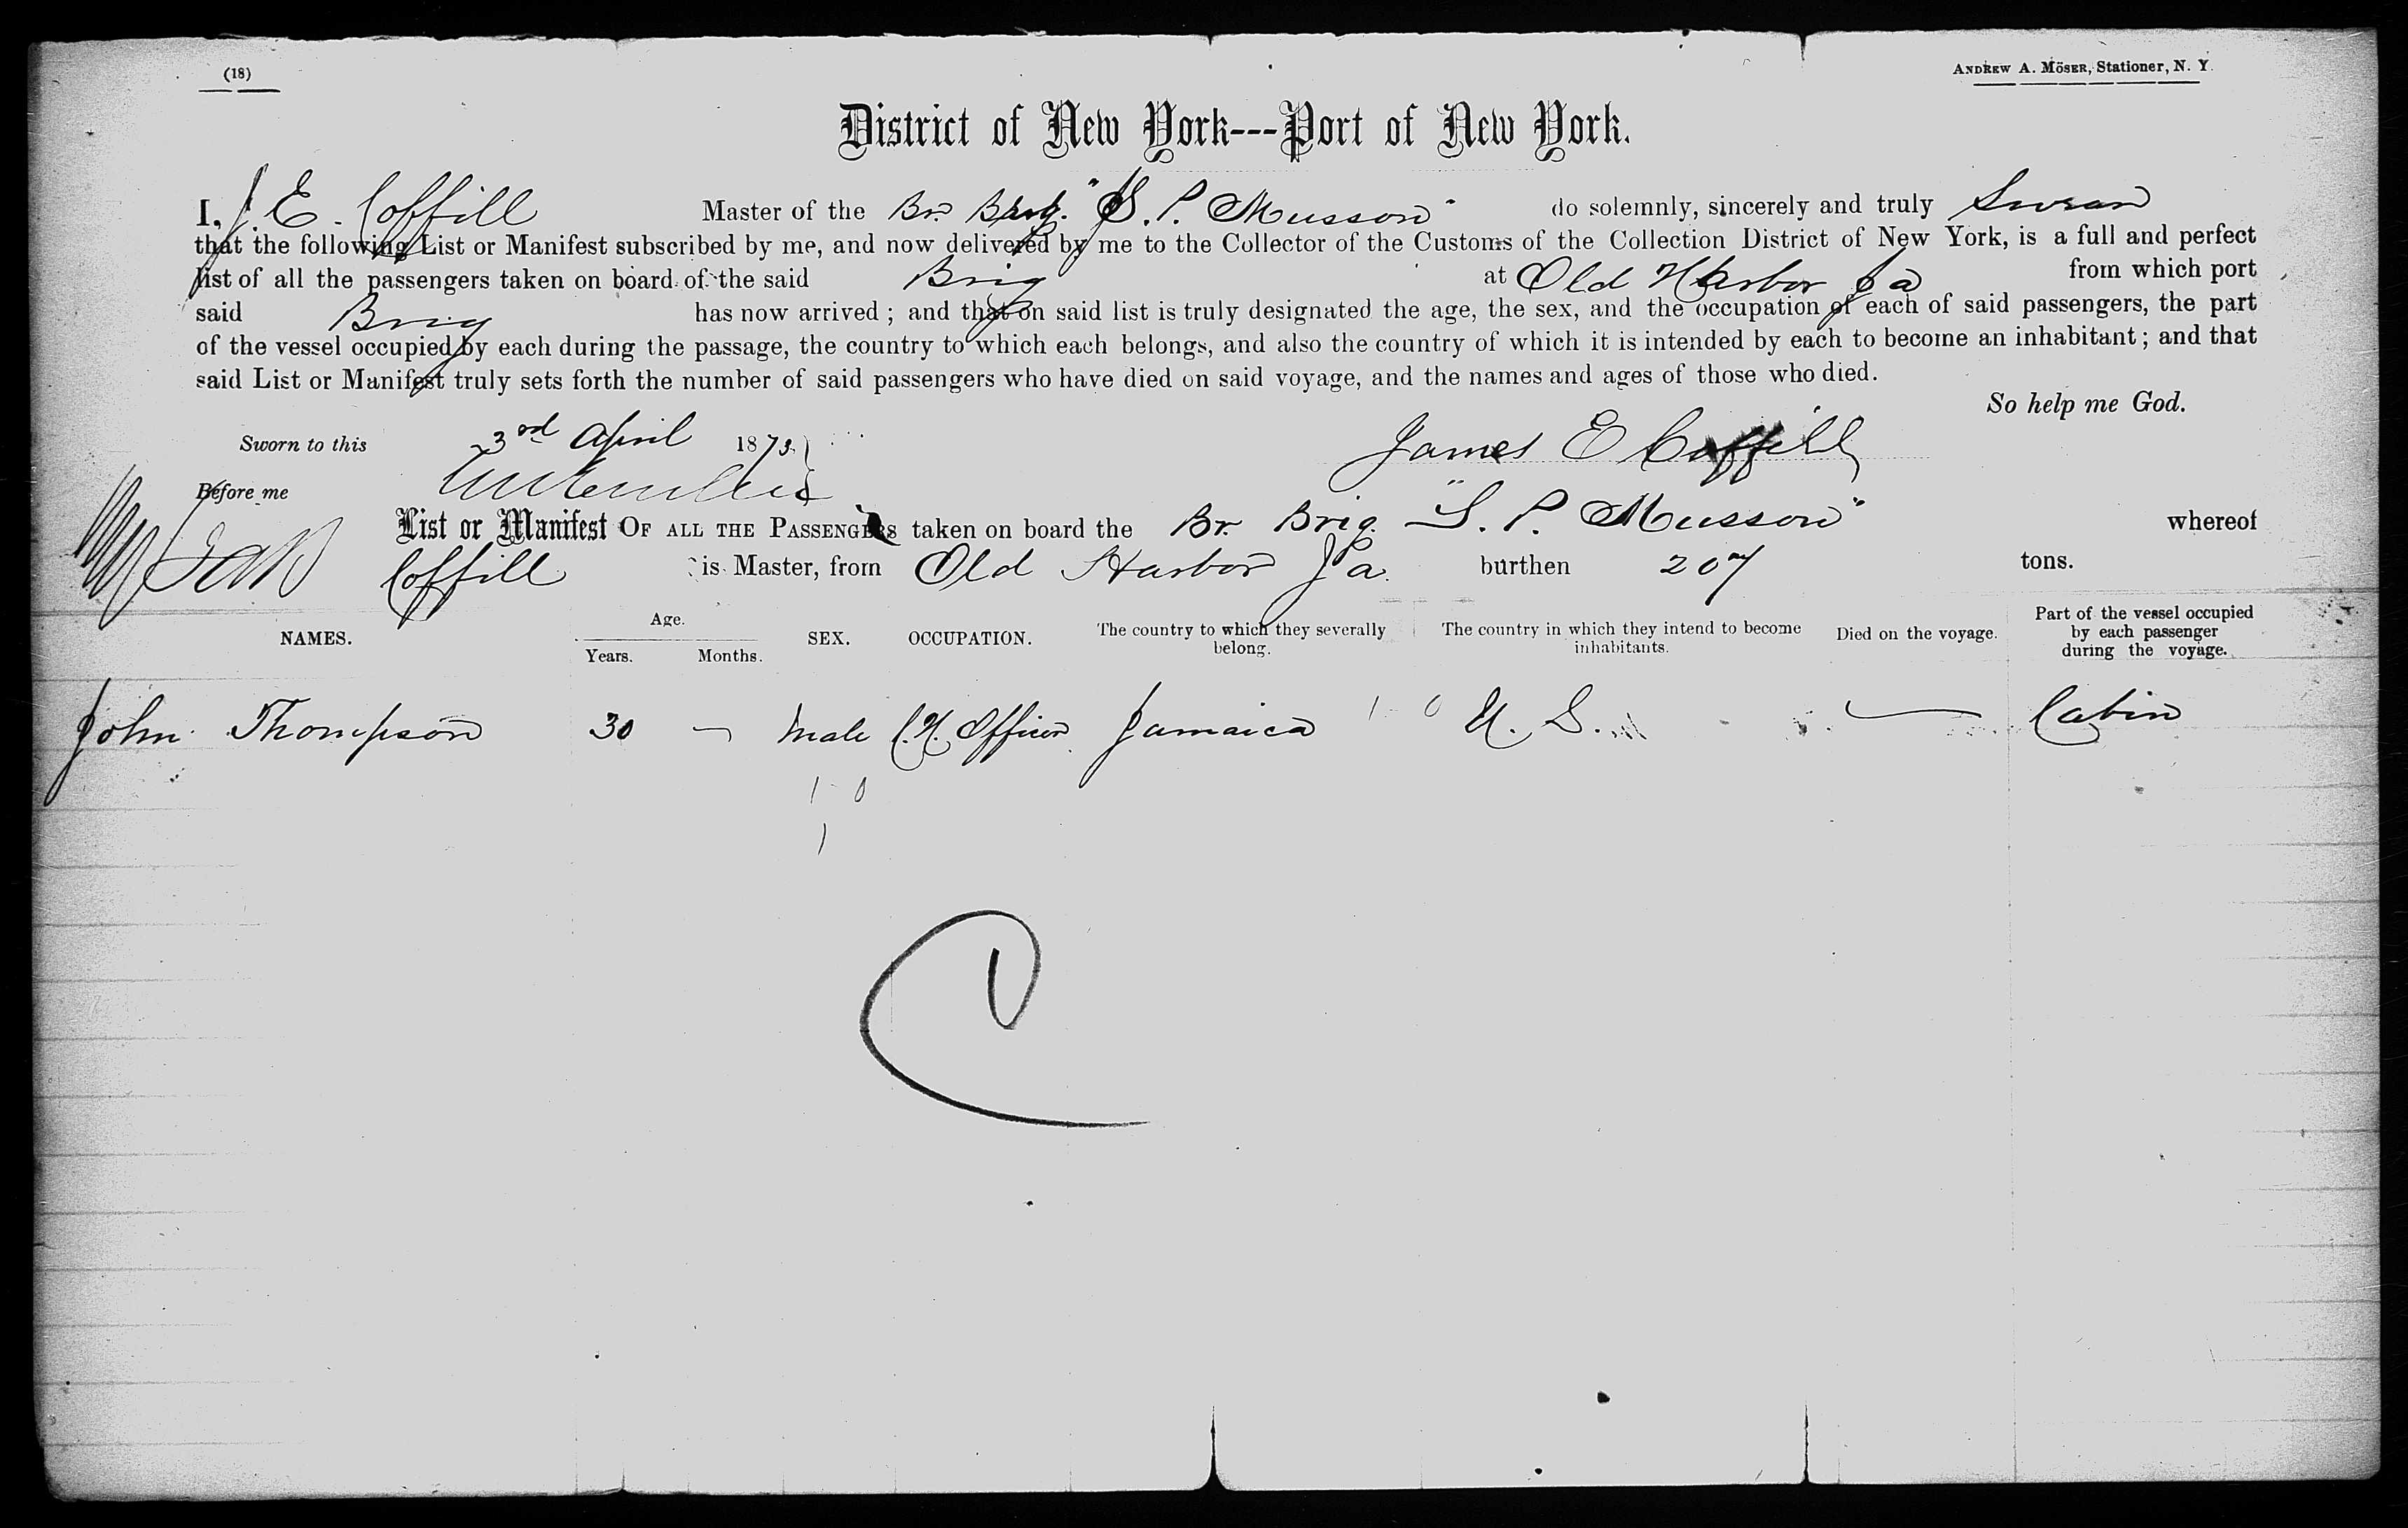 (18)
ANDREW A. MÖSER, Stationer, N. Y.
District of New York---Port of New York.
I, J. E. Coffill Master of the Br. Brig. "S. P. Musson" do solemnly, sincerely and truly Swear
that the following List or Manifest subscribed by me, and now delivered by me to the Collector of the Customs of the Collection District of New York, is a full and perfect
list of all the passengers taken on board of the said Brig at Old Harbor Ja from which port
said Brig has now arrived; and that on said list is truly designated the age, the sex, and the occupation of each of said passengers, the part
of the vessel occupied by each during the passage, the country to which each belongs, and also the country of which it is intended by each to become an inhabitant; and that
said List or Manifest truly sets forth the number of said passengers who have died on said voyage, and the names and ages of those who died.
So help me God.
Sworn to this 3rd April 1873.
James E Coffill
Before me
List or Manifest OF ALL THE PASSENGERS taken on board the Br. Brig. "S. P. Musson" whereof
Coffill is Master, from Old Harbor Ja. burthen 207 tons.
NAMES. Age. Years. Months. SEX. OCCUPATION. The country to which they severally belong. The country in which they intend to become inhabitants. Died on the voyage. Part of the vessel occupied by each passenger during the voyage.
John Thompson 30 — Male C.H. Officer Jamaica 1 - 0 U. S. — Cabin
1 - 0
1
C